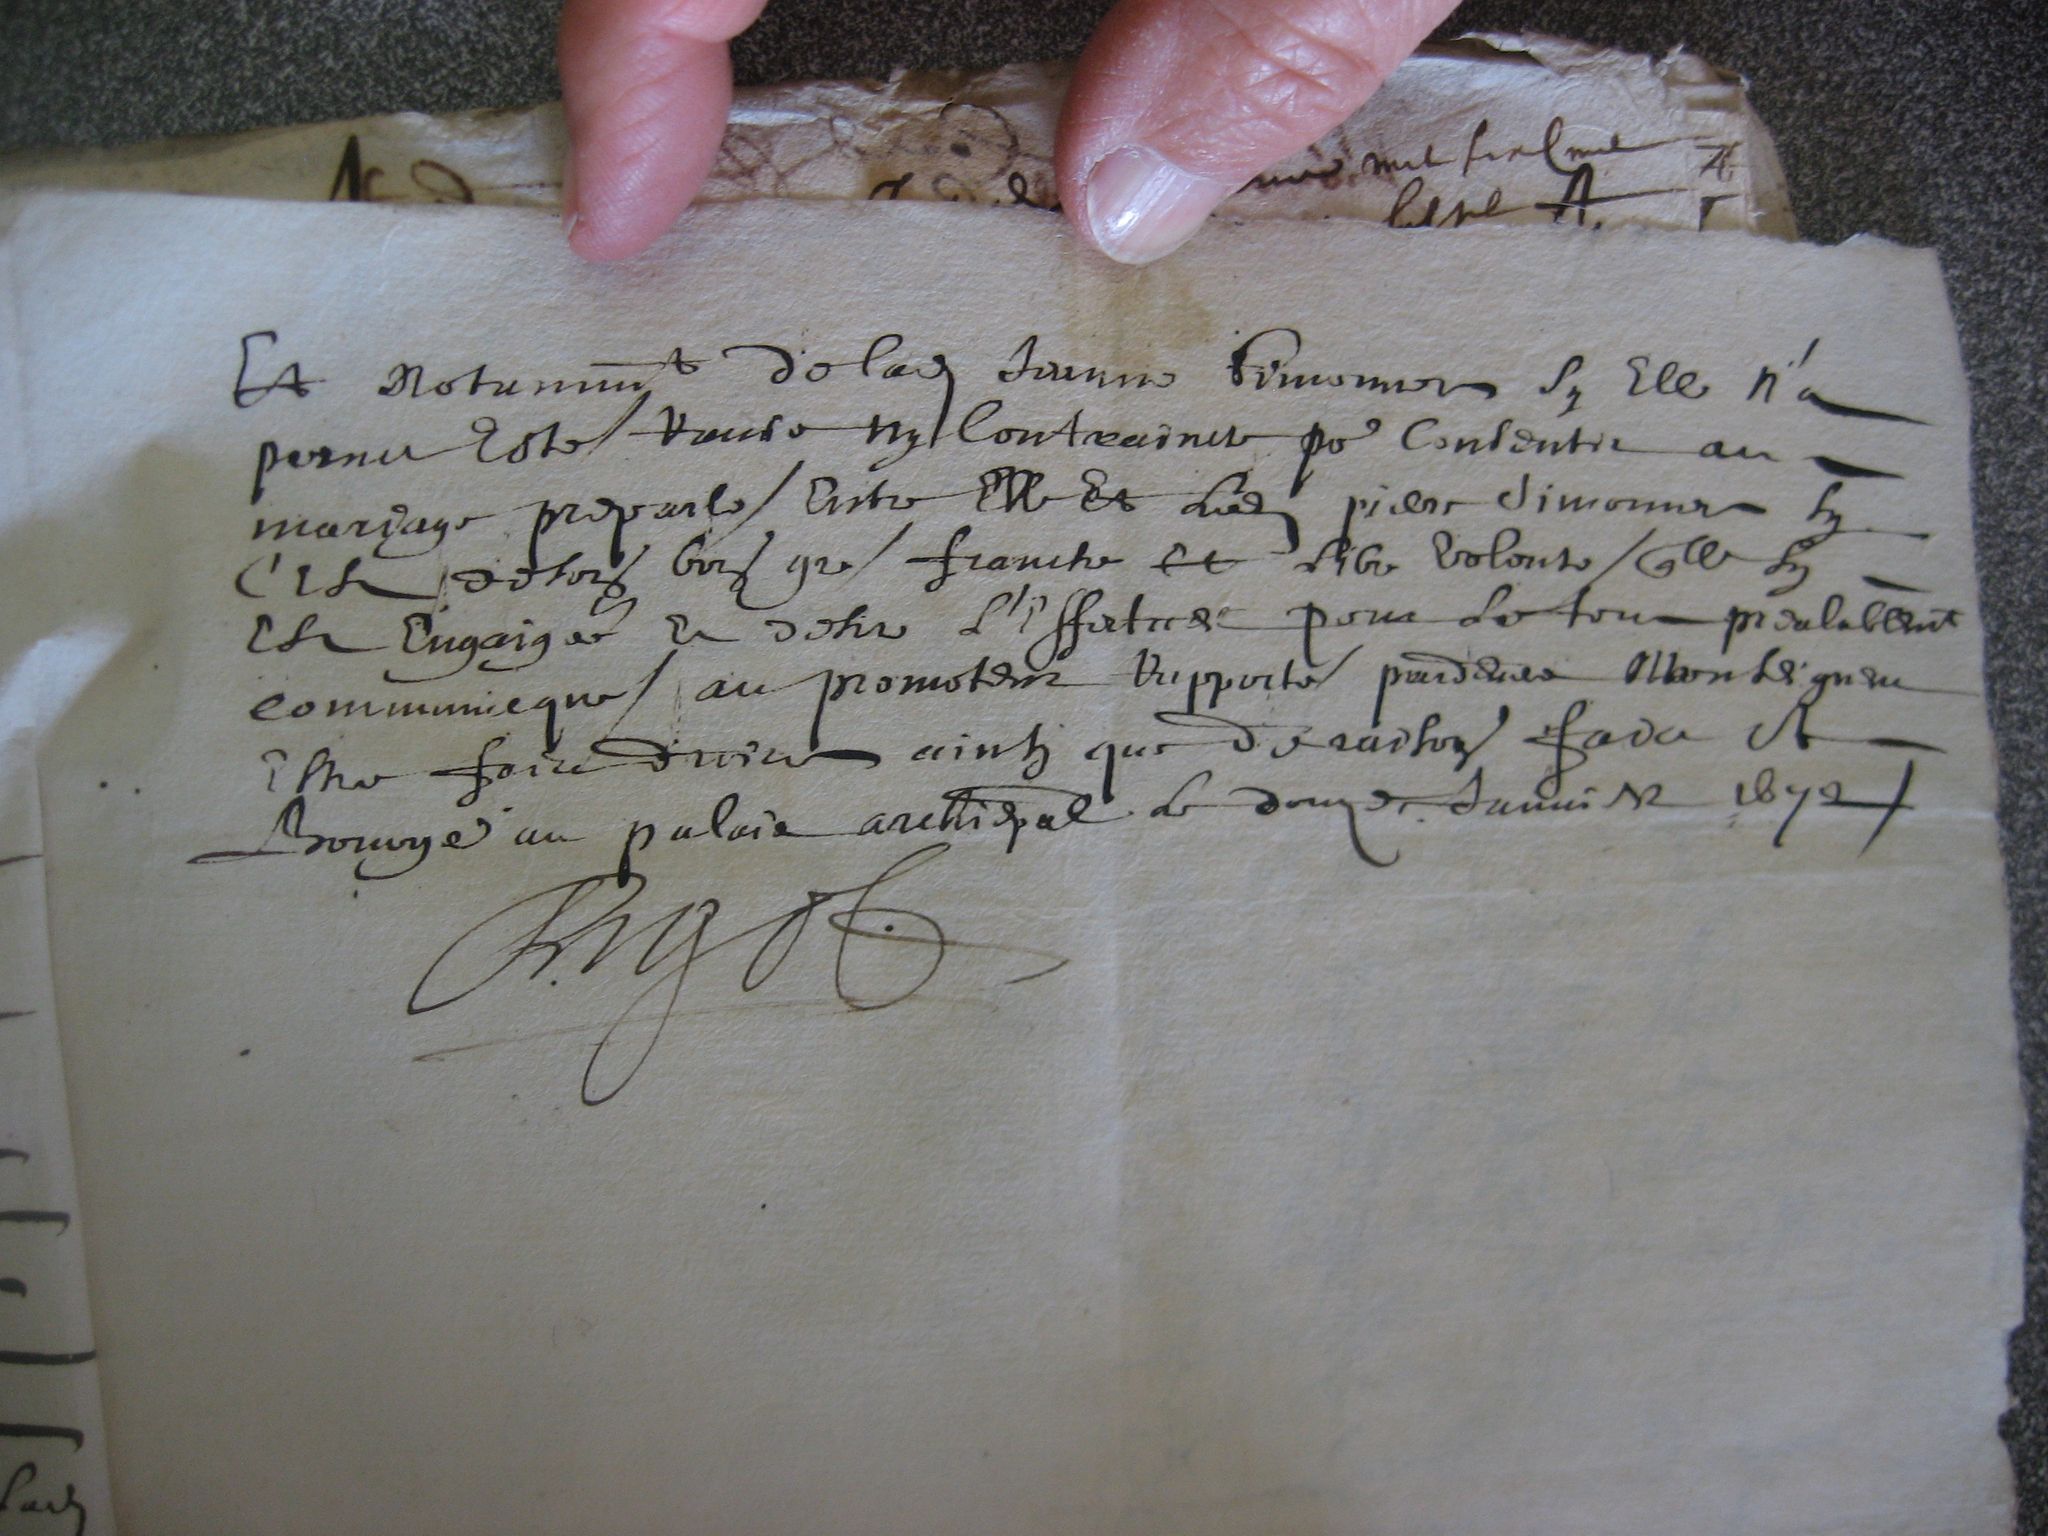 mil six cent
Et Notamm.t de lad Jeanne Simonnet Sy Elle n'a
point Esté Ravie ny Contraincte po.r Consentir au
mariage preparlé Entre Elle Et Led pierre Simonnet Sy
C'est de son bon gré franche et Libre Volonté qlle sy
Est Engaigée Et desire L'Effectuer pour Le tout prealablemt
communicqué au promoteur Rapporté pardevers Monseigneur
Estre faict droict ainsy que de raison faict A
Bourges au palais archiépal Le douze Januier 1672
Rigot